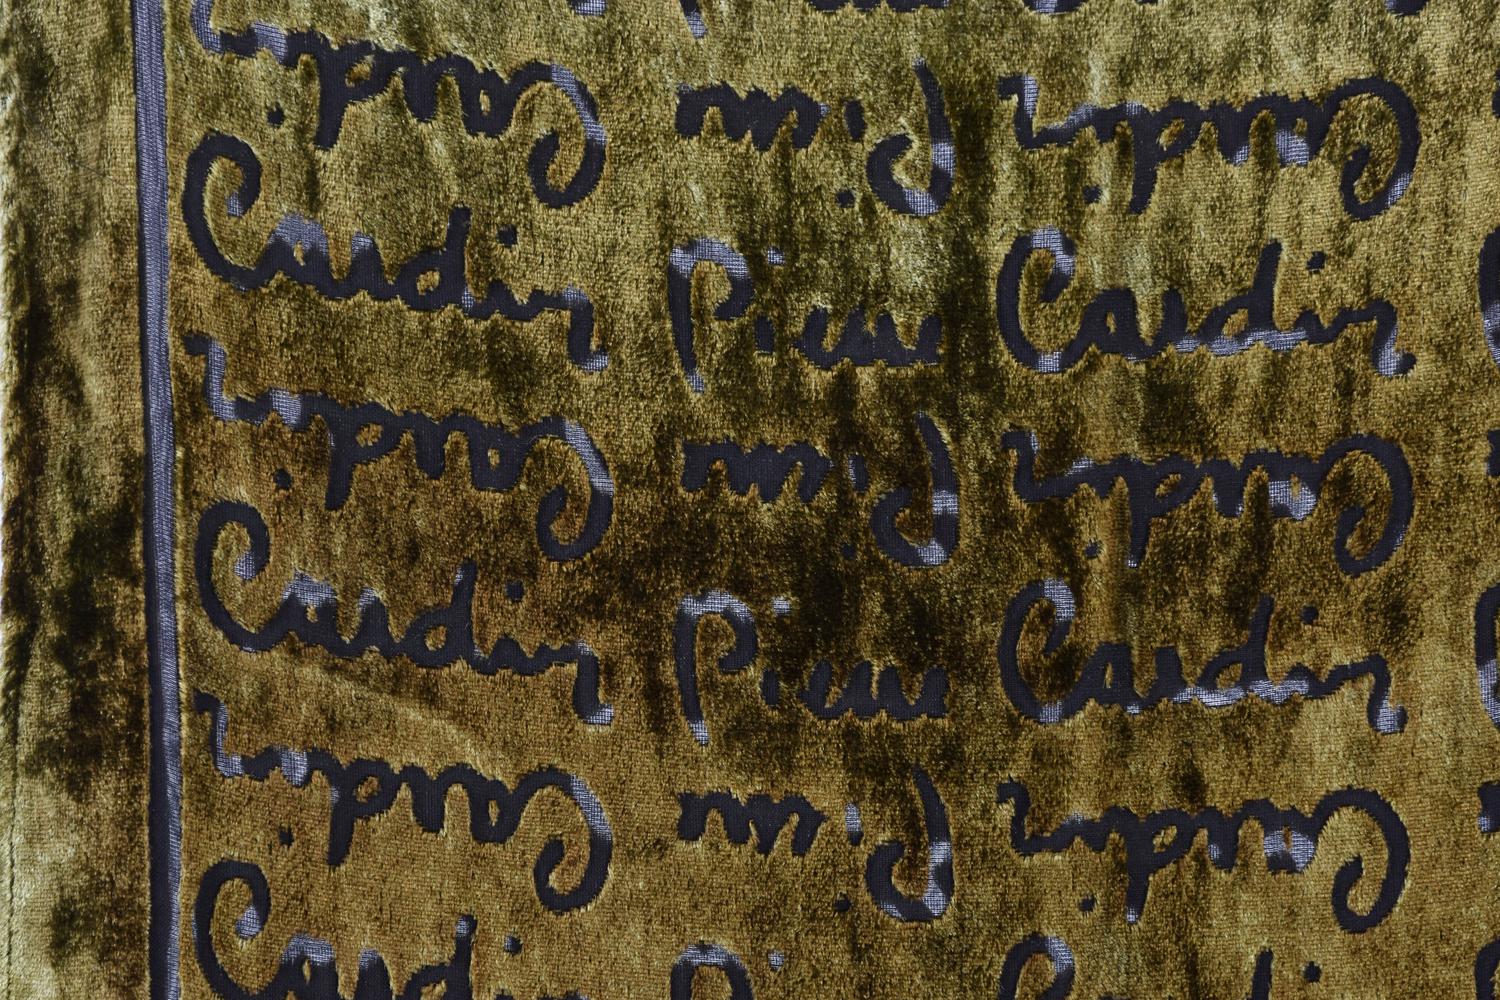 Cardin Pierre Cardin
Cardin Pierre Cardin
Cardin Pierre Cardin
Cardin Pierre Cardin
Cardin Pierre Cardin
Cardin Pierre Cardin